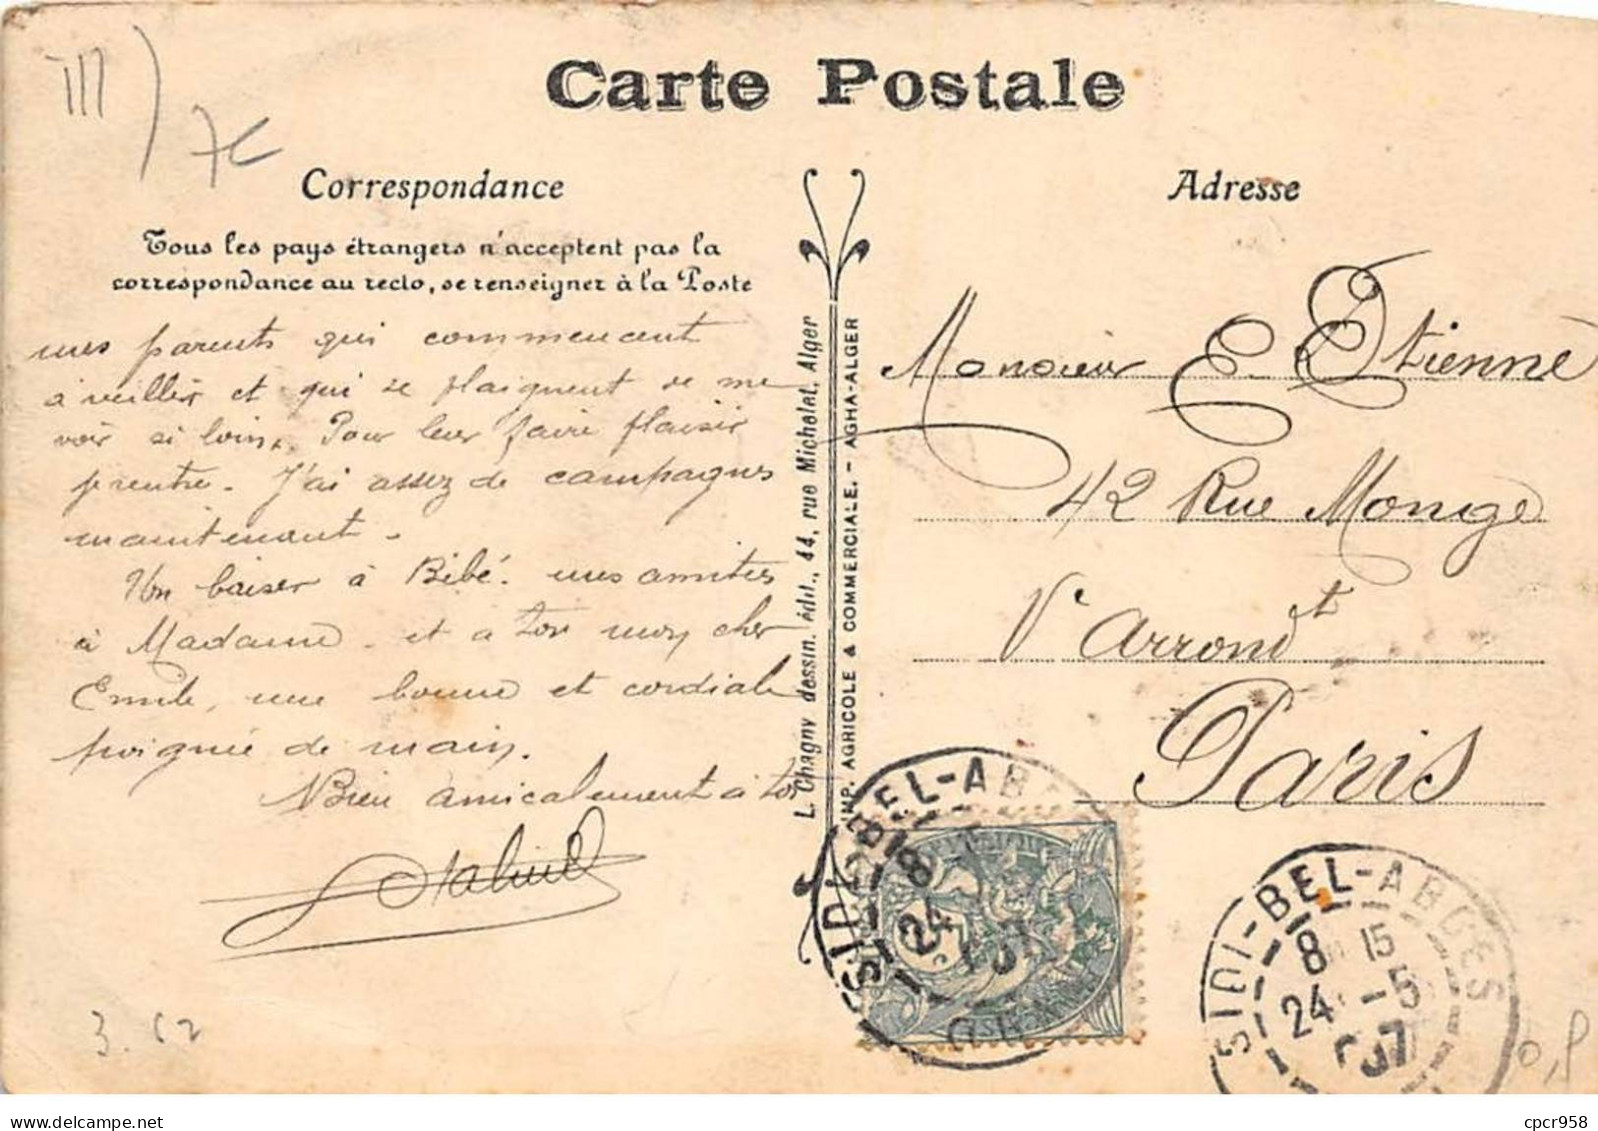 Carte Postale
7€
Correspondance
Adresse
Tous les pays étrangers n'acceptent pas la
correspondance au recto, se renseigner à la Poste
mes parents qui commencent
à veillir et qui se plaignent de me
voir si loin. Pour leur faire plaisir
je rentre. J'ai assez de campagnes
maintenant.
Un baiser à Bébé. mes amitiés
à Madame et a toi mon cher
Emile, une bonne et cordiale
poignée de main.
Bien amicalement a toi
L. Chagny dessin. édit., 44, rue Michelet, Alger
IMP. AGRICOLE & COMMERCIALE. - AGHA-ALGER
Monsieur E. Etienne
42 Rue Monge
Vᵉ Arrondᵗ
Paris
SIDI-BEL-ABBES
8
24
07
SIDI-BEL-ABBES
8 15
24 -5
07
delcampe.net
cpcr958